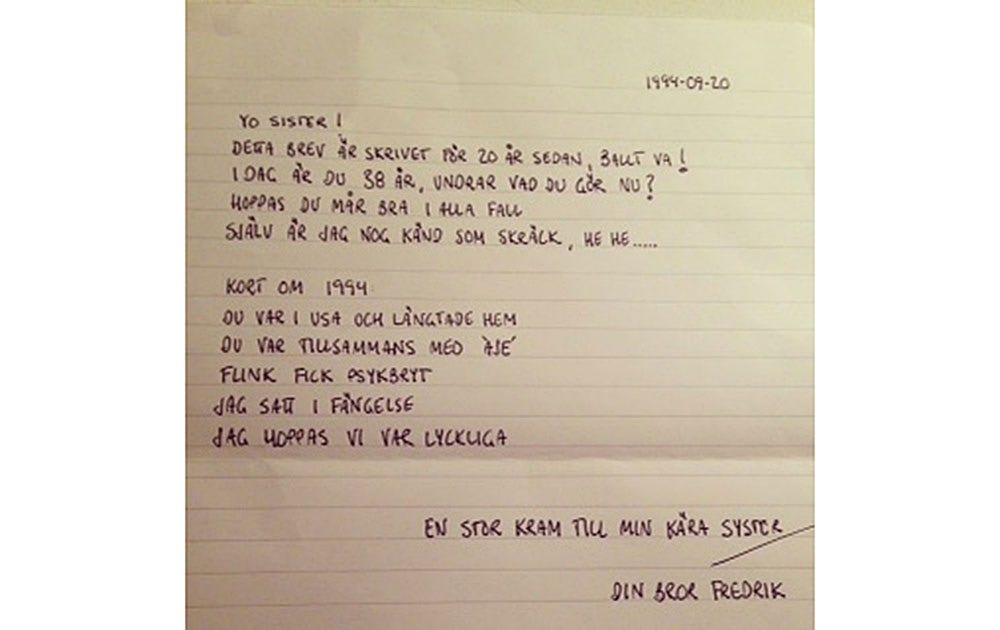 1994-09-20
YO SISTER!
DETTA BREV ÄR SKRIVET FÖR 20 ÅR SEDAN, BALLT VA!
I DAG ÄR DU 38 ÅR, UNDRAR VAD DU GÖR NU?
HOPPAS DU MÅR BRA I ALLA FALL
SJÄLV ÄR JAG NOG KÄND SOM SKRÄCK, HE HE.....
KORT OM 1994
DU VAR I USA OCH LÄNGTADE HEM
DU VAR TILLSAMMANS MED
FLINK FICK PSYKBRYT
JAG SATT I FÄNGELSE
JAG HOPPAS VI VAR LYCKLIGA
EN STOR KRAM TILL MIN KÄRA SYSTER
DIN BROR FREDRIK